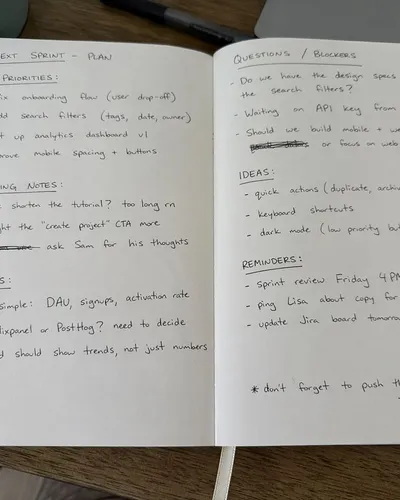 EXT SPRINT - PLAN
PRIORITIES:
ix onboarding flow (user drop-off)
dd search filters (tags, date, owner)
t up analytics dashboard v1
prove mobile spacing + buttons
ING NOTES:
shorten the tutorial? too long rn
ght the "create project" CTA more
ask Sam for his thoughts
S:
simple: DAU, signups, activation rate
ixpanel or PostHog? need to decide
d should show trends, not just numbers
QUESTIONS / BLOCKERS
- Do we have the design specs
the search filters?
- Waiting on API key from
- Should we build mobile + we
or focus on web
IDEAS:
- quick actions (duplicate, archiv
- keyboard shortcuts
- dark mode (low priority but
REMINDERS:
- sprint review Friday 4PM
- ping Lisa about copy for
- update Jira board tomorro
* don't forget to push th